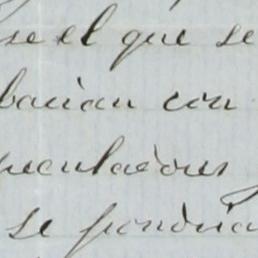 se el que se
bacian con
peculados
se pondria